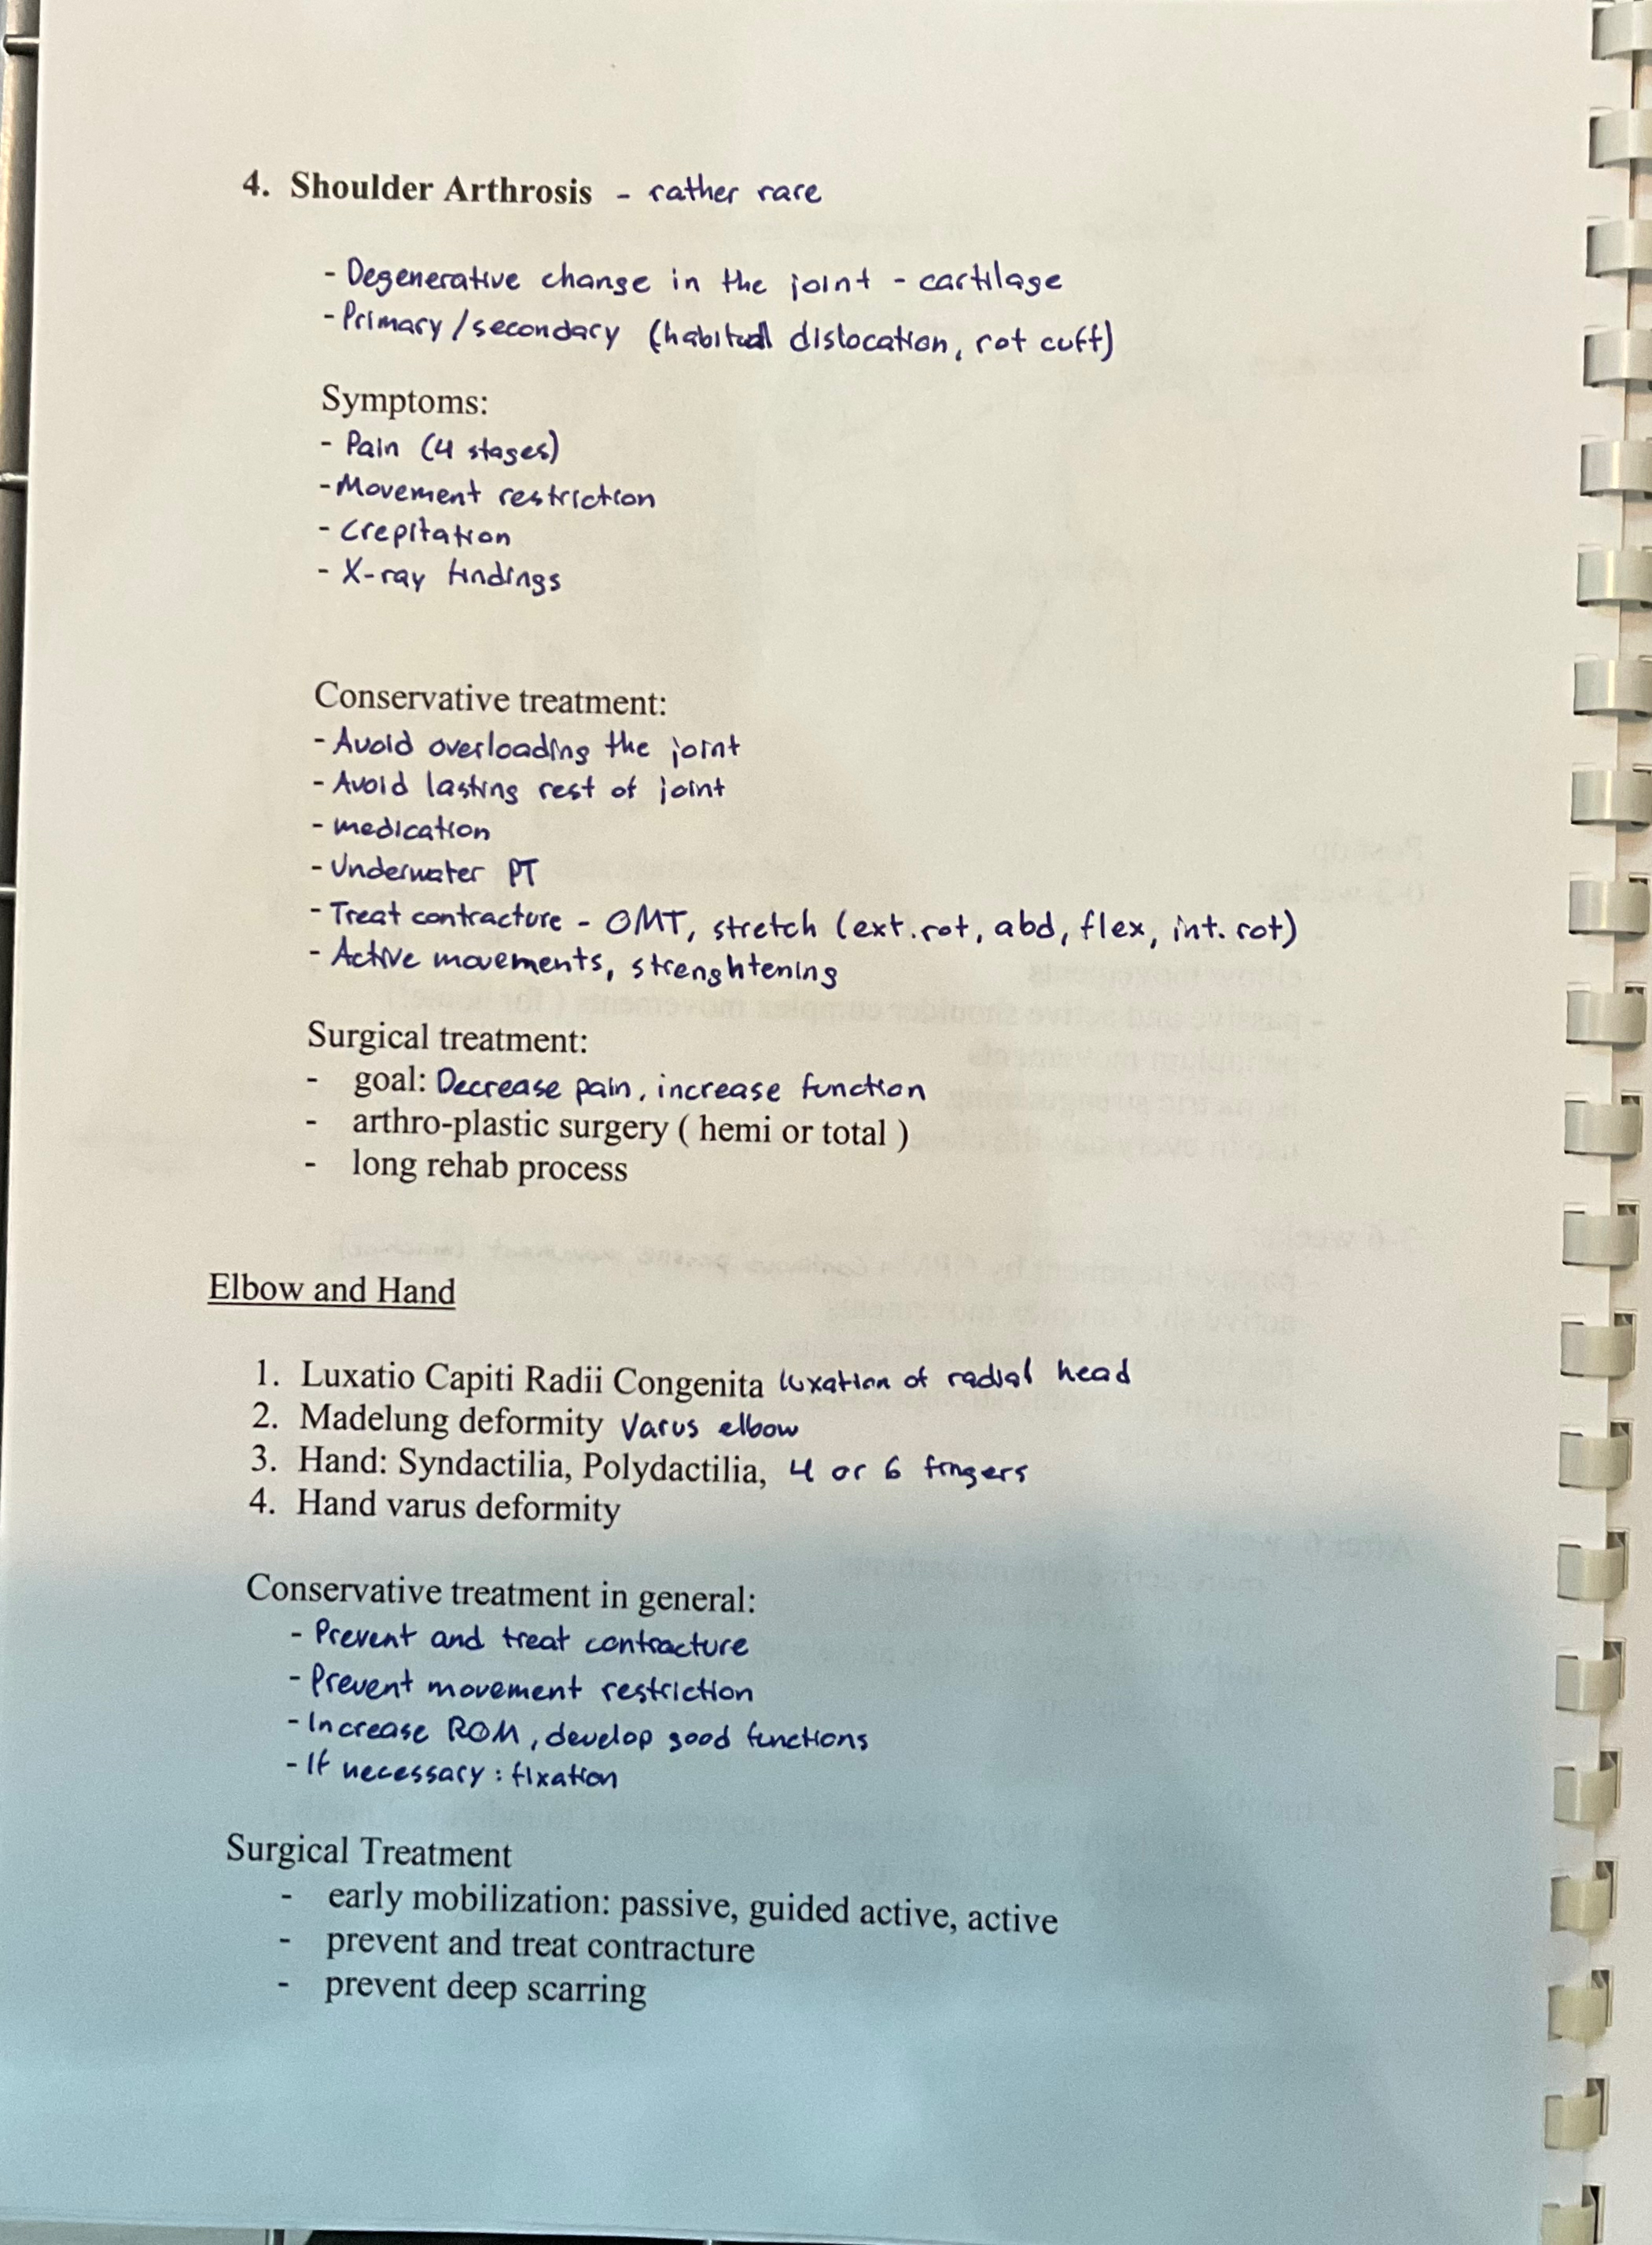 4. Shoulder Arthrosis - rather rare
- Degenerative change in the joint - cartilage
- Primary/secondary (habitual dislocation, rot cuff)
Symptoms:
- Pain (4 stages)
- Movement restriction
- Crepitation
- X-ray findings
Conservative treatment:
- Avoid overloading the joint
- Avoid lasting rest of joint
- medication
- Underwater PT
- Treat contracture - OMT, stretch (ext. rot, abd, flex, int. rot)
- Active movements, strenghtening
Surgical treatment:
- goal: Decrease pain, increase function
- arthro-plastic surgery ( hemi or total )
- long rehab process
Elbow and Hand
1. Luxatio Capiti Radii Congenita luxation of radial head
2. Madelung deformity Varus elbow
3. Hand: Syndactilia, Polydactilia, 4 or 6 fingers
4. Hand varus deformity
Conservative treatment in general:
- Prevent and treat contracture
- Prevent movement restriction
- Increase ROM, develop good functions
- If necessary: fixation
Surgical Treatment
- early mobilization: passive, guided active, active
- prevent and treat contracture
- prevent deep scarring